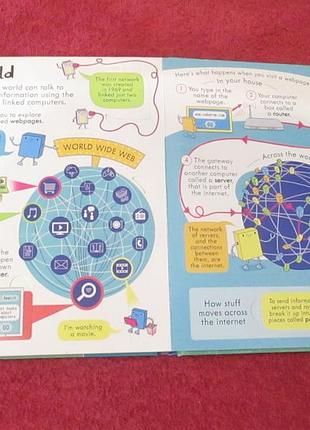 ld
world can talk to
information using the
linked computers.
you to explore
webpages.
The first network
was created
in 1969 and
linked just two
computers.
WORLD WIDE WEB
The
open
own
I'm watching
a movie.
Here's what happens when you visit a webpage
in your house
1 You type in
the name of the
webpage.
2 Your computer
connects to
a box called
a router.
4 The gateway
connects to
another computer
called a server,
that is part of
the internet.
Across the wo
The network
of servers, and the
connections
between them,
are the
internet.
How stuff
moves across
the internet
To send informa
servers and ro
break it up into
pieces called